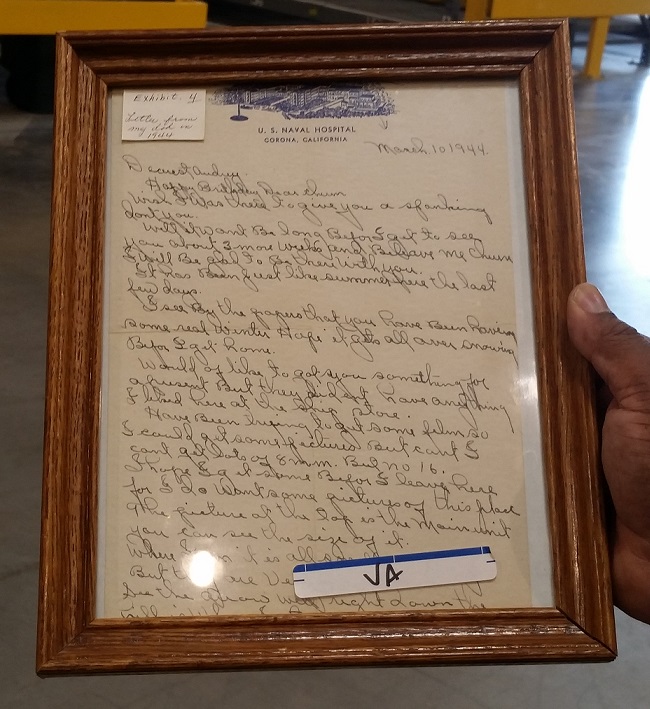 Exhibit 4
Letter from
my dad in
1944
U. S. NAVAL HOSPITAL
CORONA, CALIFORNIA
March 10 1944.
Dearest Audrey
Happy Birthday Dear chum
Wish I was there to give you a spanking
dont you.
Well it wont Be long Befor I get to see
you about 3 more weeks and Beleave me chum
I will Be glad to Be there with you.
It has Been just like summer here the last
few days.
I see By the papers that you have Been having
some real winter Hope it gets all over snowing
Befor I get home.
Would of like to got you something for
a present But they dident have anything
I liked here at the ship store.
Have Been trying to get some film so
I could get some pictures But cant I
cant get lots of 8 mm. But no 16.
I hope I get some Befor I leave here
for I do want some pictures of this place
The picture at the top is the Main unit
you can see the size of it.
Where it is all
But are
VA
See the right down the